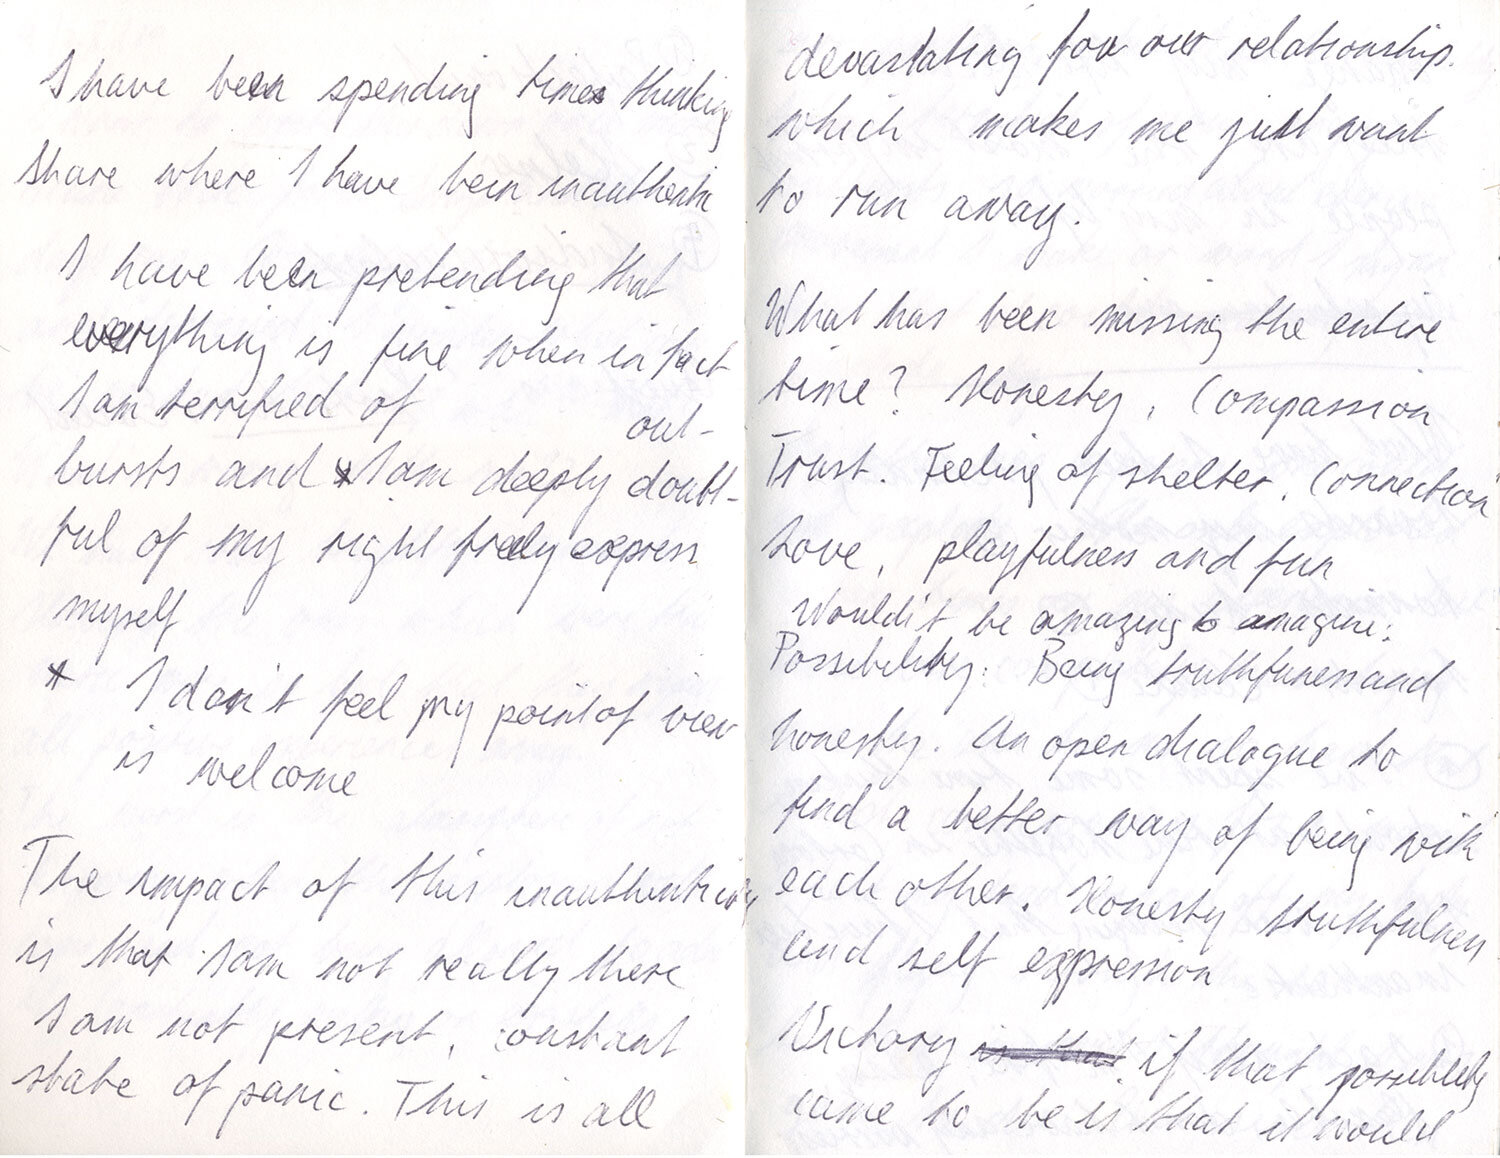 I have been spending time thinking
share where I have been inauthentic
I have been pretending that
everything is fine when in fact
I am terrified of out-
bursts and * I am deeply doubt-
ful of my right freely express
myself
* I don't feel my point of view
is welcome
The impact of this inauthenticity
is that I am not really there
I am not present, constant
state of panic. This is all
devastating for our relationship.
which makes me just want
to run away.
What has been missing the entire
time? Honesty, Compassion
Trust. Feeling of shelter. Connection
Love, playfulness and fun
Would it be amazing to imagine:
Possibility: Being truthfulness and
honesty. An open dialogue to
find a better way of being with
each other. Honesty truthfulness
and self expression
Victory is that if that possibility
came to be is that it would